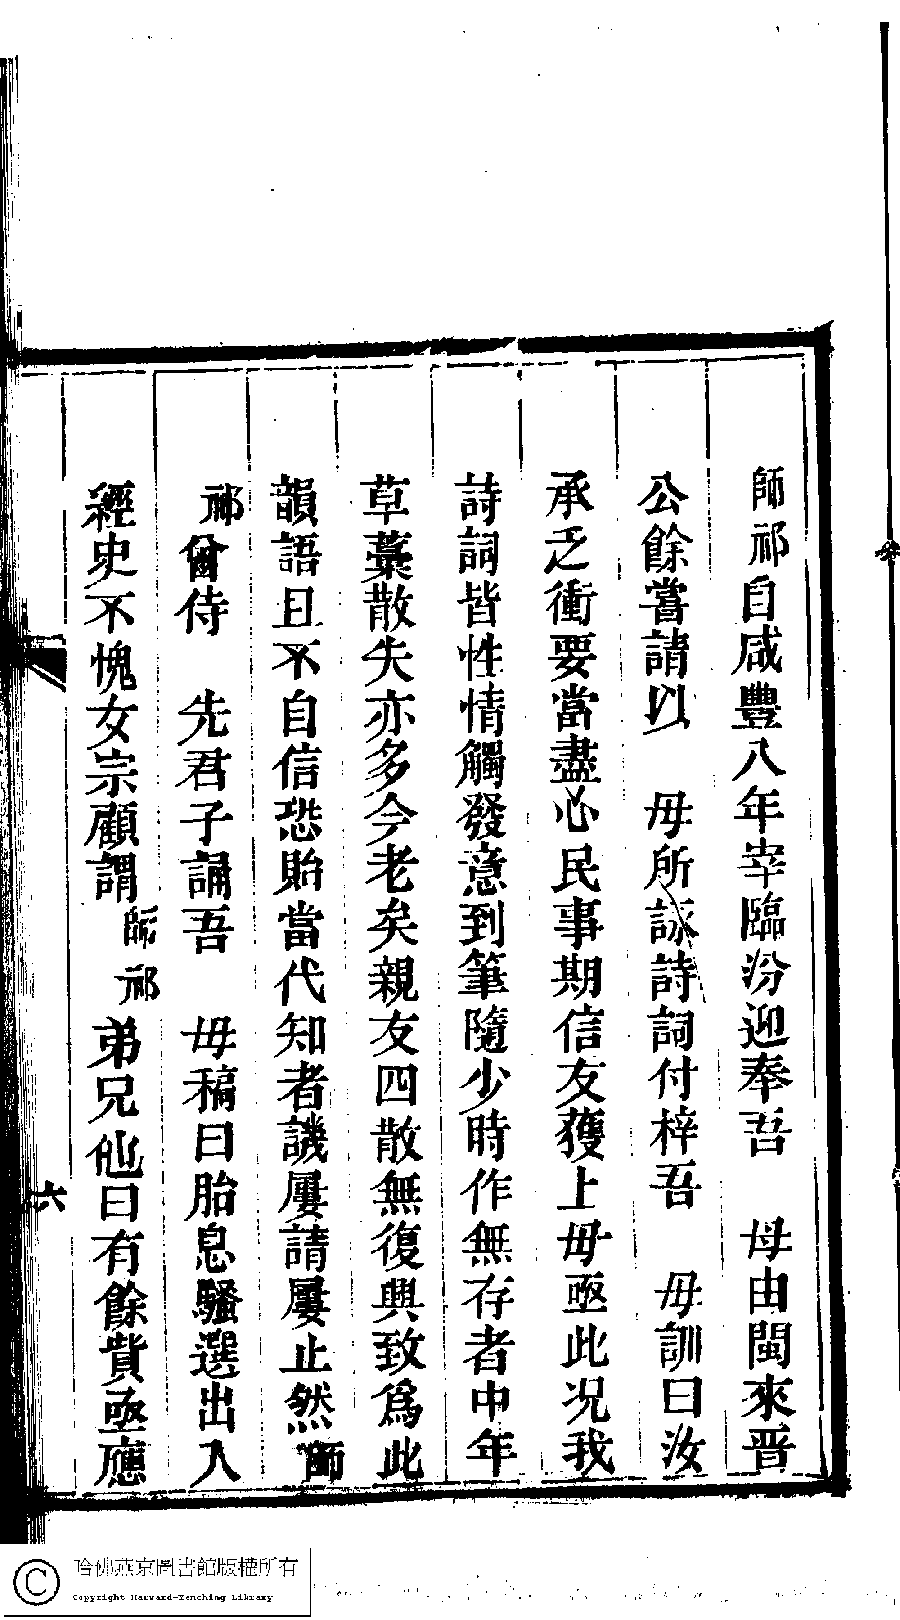 師祁自咸豐八年宰臨汾迎奉吾　母由閩來晋
公餘嘗請以　母所詠詩詞付梓吾　母訓曰汝
承乏衝要當盡心民事期信友獲上毋亟此况我
詩詞皆性情觸發意到筆隨少時作無存者中年
草藁散失亦多今老矣親友四散無復興致爲此
韻語且不自信恐貽當代知者譏屢請屢止然師
祁曾侍　先君子誦吾　母稿曰胎息騷選出入
經史不愧女宗顧謂師祁弟兄他日有餘貲亟應
六
哈佛燕京圖書館版權所有
Copyright Harvard-Yenching Library